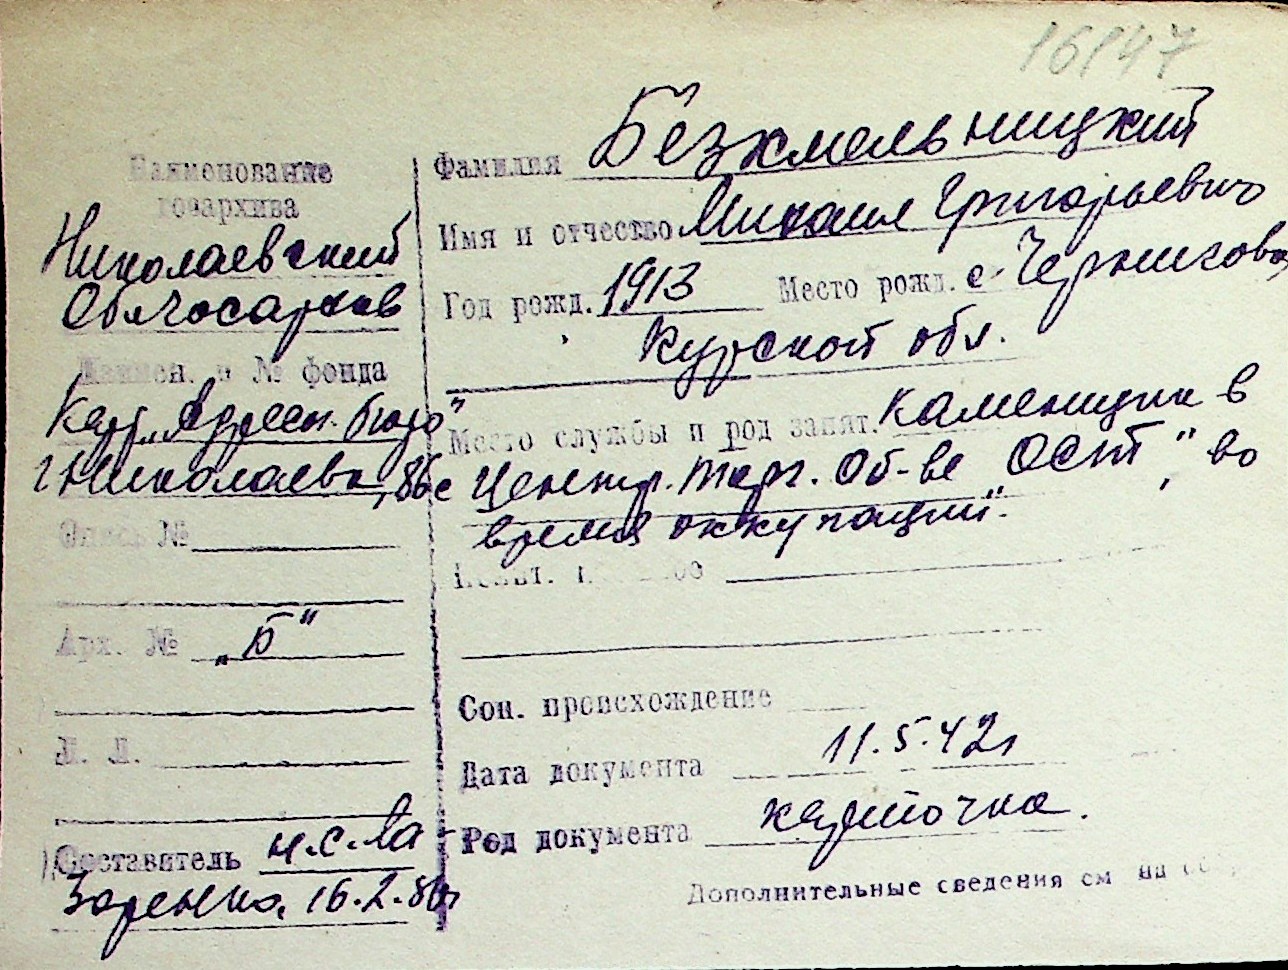 16147
Наименование
госархива
Николаевский
Облгосархив
Наимен. и № фонда
Карт. „Адресн. бюро"
г. Николаева, 86с
Опись №
Арх. № „Б"
Л. Л.
Составитель н.с. Ла-
заренко, 16.2.86г
Фамилия Безхмельницкий
Имя и отчество Михаил Григорьевич
Год рожд. 1913 Место рожд. с. Черниково,
Курской обл.
Место службы и род занят. каменщик в
Центр. торг. Об-ве „ОСТ" во
время оккупации".
Соц. происхождение
Дата документа 11.5.42г
Род документа карточка.
Дополнительные сведения см на